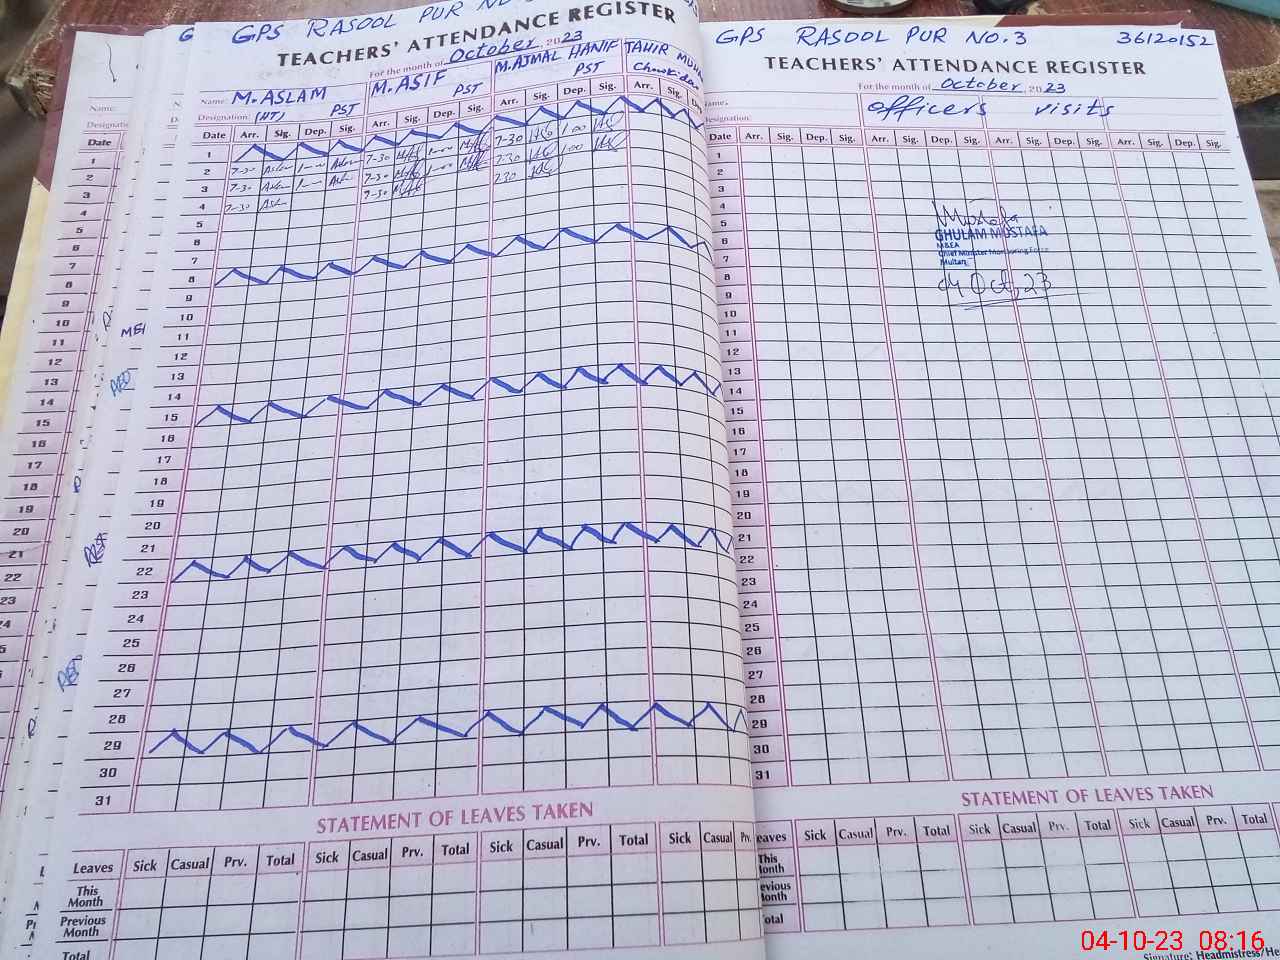 GPS RASOOL PUR NO.
TEACHERS' ATTENDANCE REGISTER
For the month of October 2023
Name: M. ASLAM M. ASIF M. AJMAL HANIF TAHIR
Designation: (HT) PST PST PST Chowkidar
Date Arr. Sig. Dep. Sig. Arr. Sig. Dep. Sig. Arr. Sig. Dep. Sig. Arr. Sig.
1
2 7-30 7-30 7-30 1 00
3 7-30 7-30 7-30 1 00
4 7-30 7-30 7 30
5
6
7
8
9
10
11
12
13
14
15
16
17
18
19
20
21
22
23
24
25
26
27
28
29
30
31
STATEMENT OF LEAVES TAKEN
Leaves Sick Casual Prv. Total Sick Casual Prv. Total Sick Casual Prv. Total Sick Casual Prv.
This Month
Previous Month
Total
GPS RASOOL PUR NO. 3 36120152
TEACHERS' ATTENDANCE REGISTER
For the month of October 2023
Name.
Designation: officers visits
Date Arr. Sig. Dep. Sig. Arr. Sig. Dep. Sig. Arr. Sig. Dep. Sig. Arr. Sig. Dep. Sig.
1
2
3
4
5
6
7
8
9
10
11
12
13
14
15
16
17
18
19
20
21
22
23
24
25
26
27
28
29
30
31
Mustafa
GHULAM MUSTAFA
M&EA
Chief Minister Monitoring Force
Multan
04 Oct, 23
STATEMENT OF LEAVES TAKEN
eaves Sick Casual Prv. Total Sick Casual Prv. Total Sick Casual Prv. Total
This
Month
evious
Month
otal
Signature: Headmistress/He
04-10-23 08:16